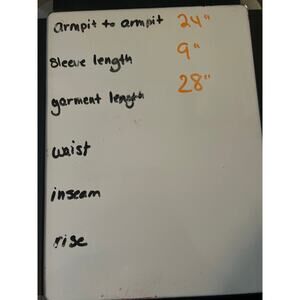 armpit to armpit 24"
sleeve length 9"
garment length 28"
waist
inseam
rise